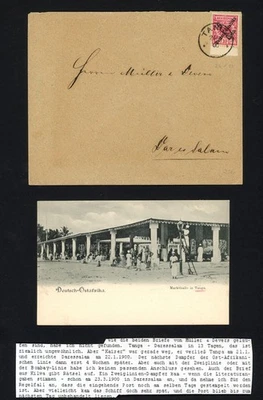 TANGA
Herrn Müller & Devers
Daressalam
Deutsch-Ostafrika.
Markthalle in Tanga.
wie die beiden Briefe von Müller & Devers gelau-
fen sind, habe ich nicht gefunden. Tanga - Daressalam in 13 Tagen, das ist
ziemlich ungewöhnlich. Aber "Kaiser" war gerade weg, er verließ Tanga am 21.1.
und erreichte Daressalam am 22.1.1900. Der nächste Dampfer der Ost-Afrikani-
schen Linie dann erst 4 Wochen später. Aber auch mit der Zweiglinie oder mit
der Bombay-Linie habe ich keinen passenden Anschluss gesehen. Auch der Brief
aus Kilwa gibt Rätsel auf. Ein Zweiglinien-Dampfer kam - wenn die Literaturan-
gaben stimmen - schon am 23.3.1900 in Daressalam an, und da nehme ich für den
Regelfall an, dass die eingehende Post noch am selben Tage gestempelt worden
ist. Aber vielleicht kam das Schiff doch sehr spät, und die Post blieb bis zum
nächsten Tag unbehandelt liegen.